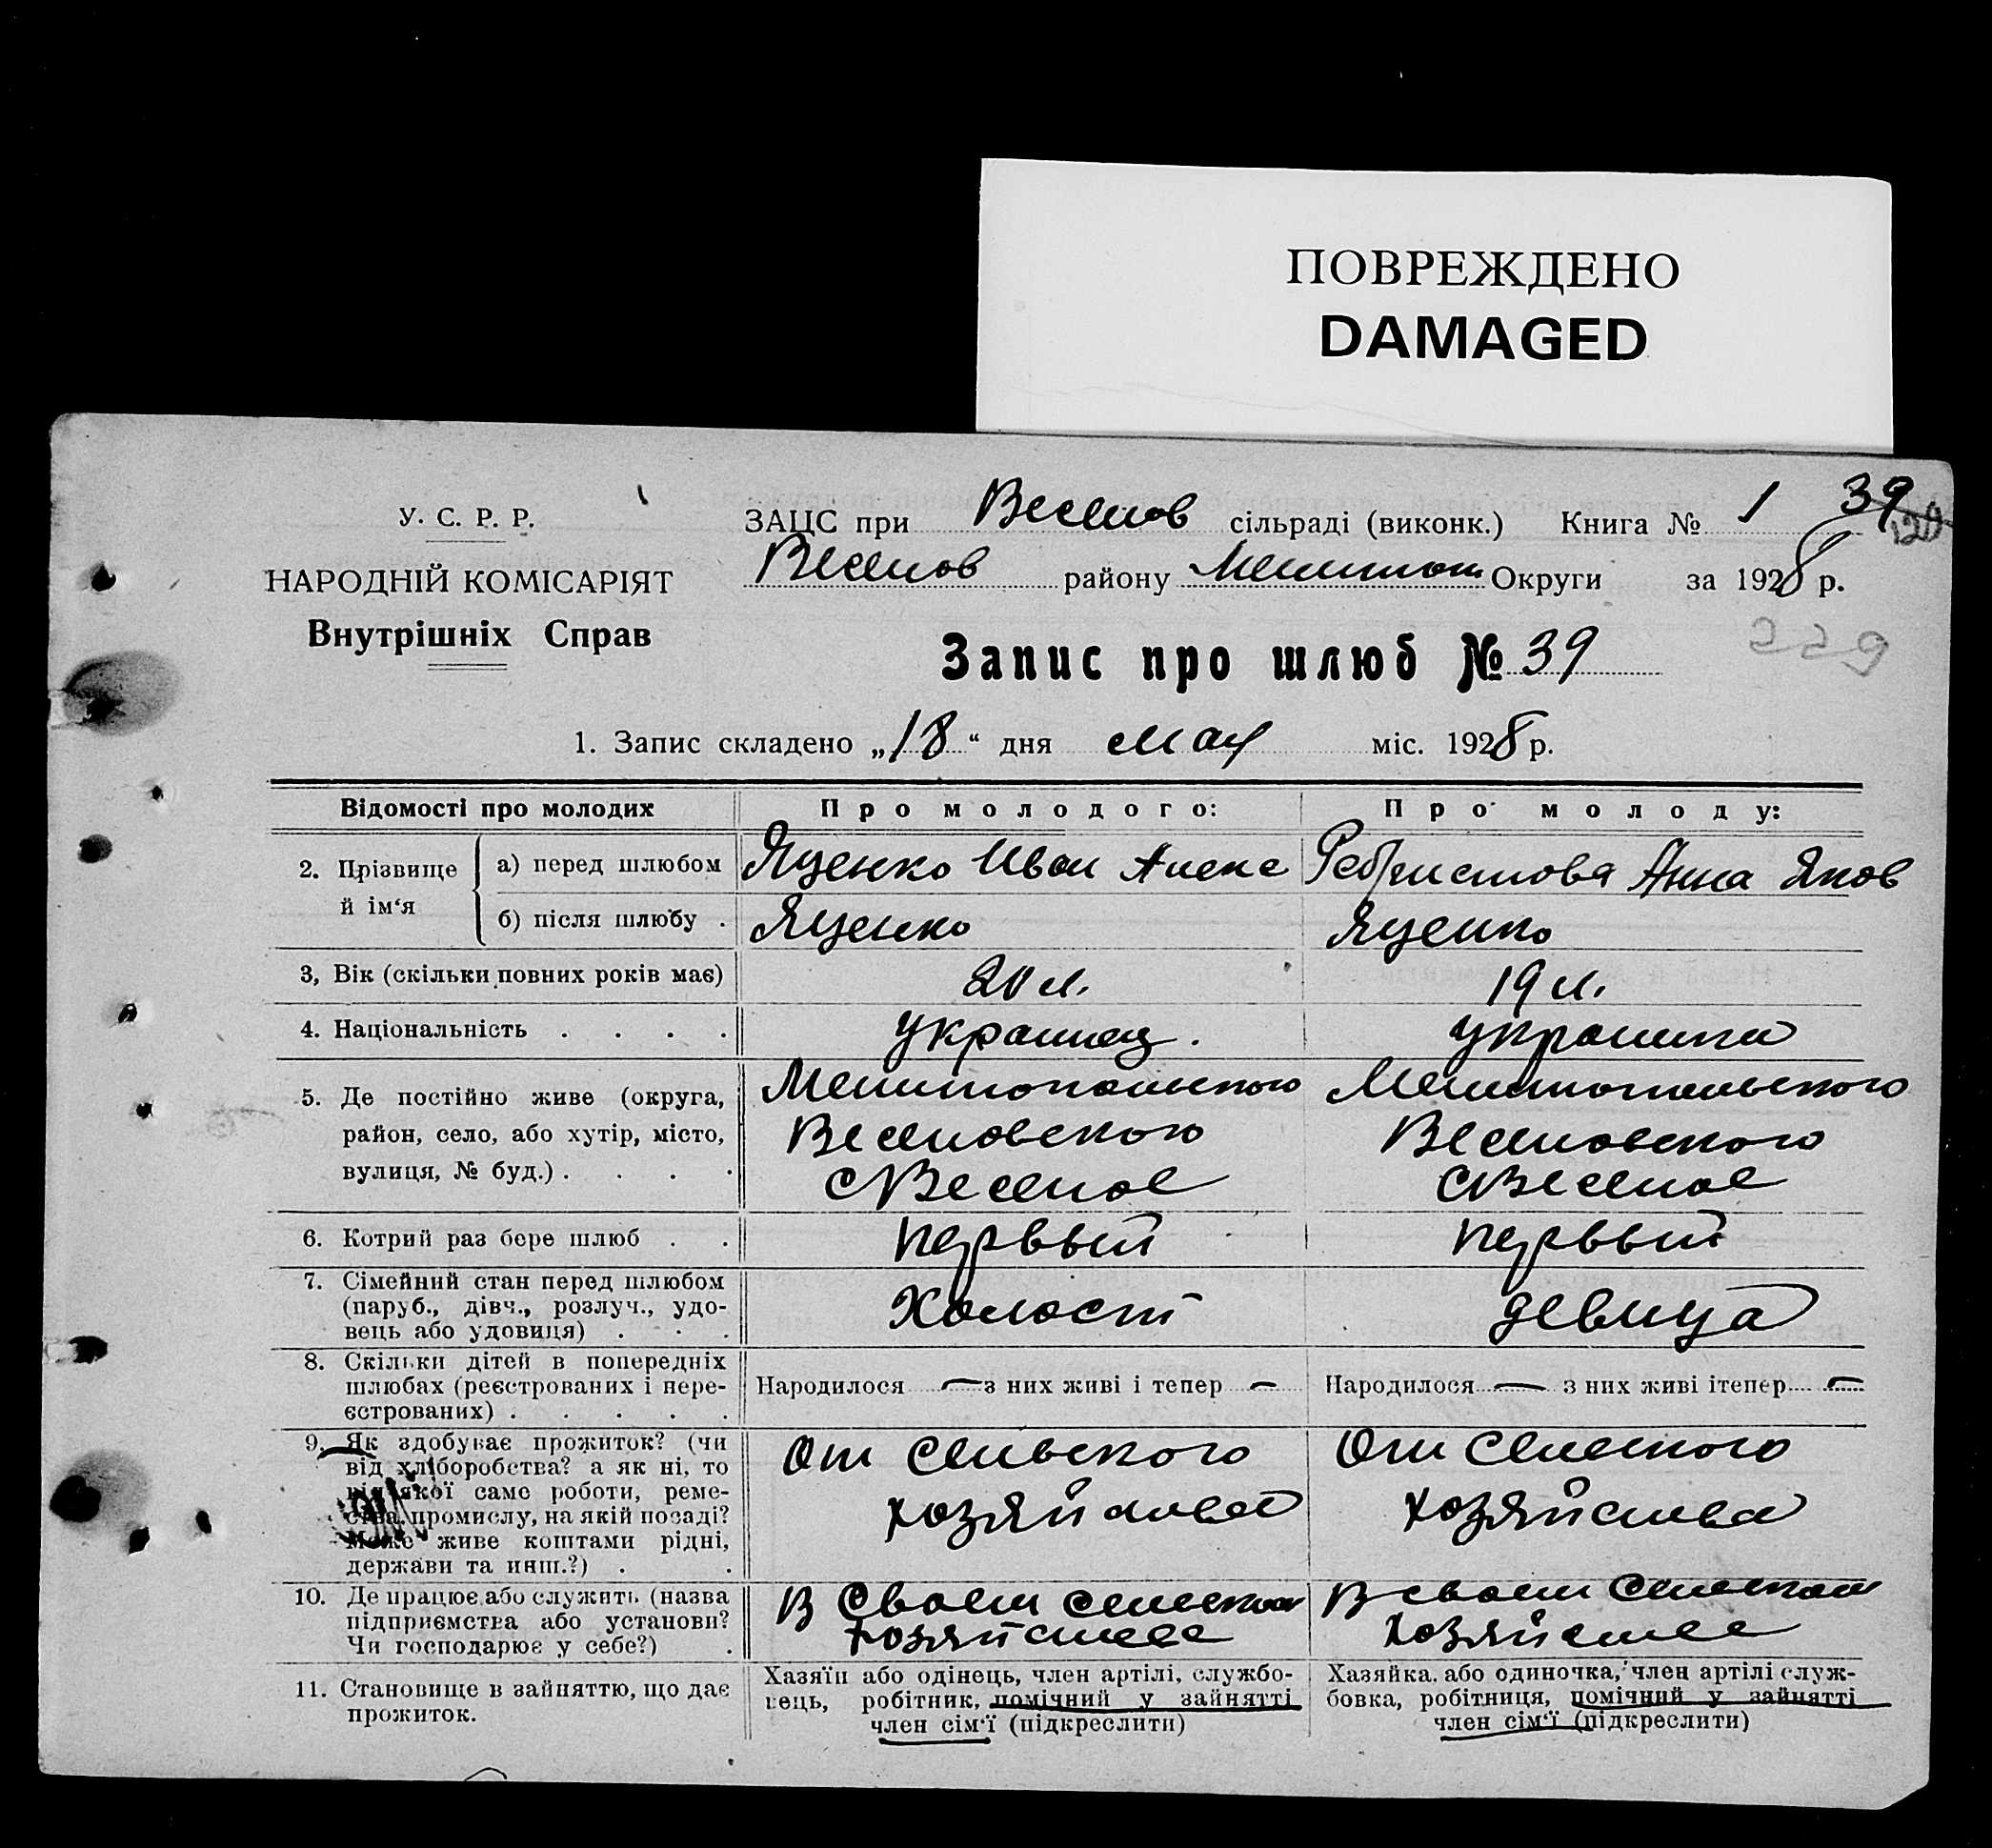 ПОВРЕЖДЕНО
DAMAGED
У. С. Р. Р.
НАРОДНІЙ КОМІСАРІЯТ
Внутрішніх Справ
ЗАЦС при Веселов сільраді (виконк.) Книга № 1 39
Веселов району Мелитоп Округи за 1928 р.
Запис про шлюб № 39
229
1. Запис складено „18“ дня мая міс. 1928 р.
Відомості про молодих
Про молодого:
Про молоду:
2. Прізвище й ім‘я
а) перед шлюбом
Яценко Иван Алекс
Ребристова Анна Яков
б) після шлюбу .
Яценко
Яценко
3, Вік (скільки повних років має)
20 л.
19 л.
4. Національність . . . .
Украинец.
Украинка
5. Де постійно живе (округа,
район, село, або хутір, місто,
вулиця, № буд.) . . . .
Мелитопольского
Веселовского
с Веселое
Мелитопольского
Веселовского
с Веселое
6. Котрий раз бере шлюб . .
первый
первый
7. Сімейний стан перед шлюбом
(паруб., дівч., розлуч., удо-
вець або удовиця) . . .
Холост
девица
8. Скільки дітей в попередніх
шлюбах (реєстрованих і пере-
єстрованих) . . . . .
Народилося — з них живі і тепер —
Народилося — з них живі ітепер —
9. Як здобуває прожиток? (чи
від хліборобства? а як ні, то
від якої саме роботи, реме-
ства, промислу, на якій посаді?
Може живе коштами рідні,
держави та инш.?) . .
От сельского
хозяйства
От сельского
хозяйства
10. Де працює або служить (назва
підприємства або установи?
Чи господарює у себе?) .
В своем сельском
хозяйстве
В своем сельском
хозяйстве
11. Становище в зайняттю, що дає
прожиток.
Хазяїн або одінець, член артілі, службо-
вець, робітник, помічний у зайнятті
член сім‘ї (підкреслити)
Хазяйка, або одиночка, член артілі служ-
бовка, робітниця, помічний у зайнятті
член сім‘ї (підкреслити)